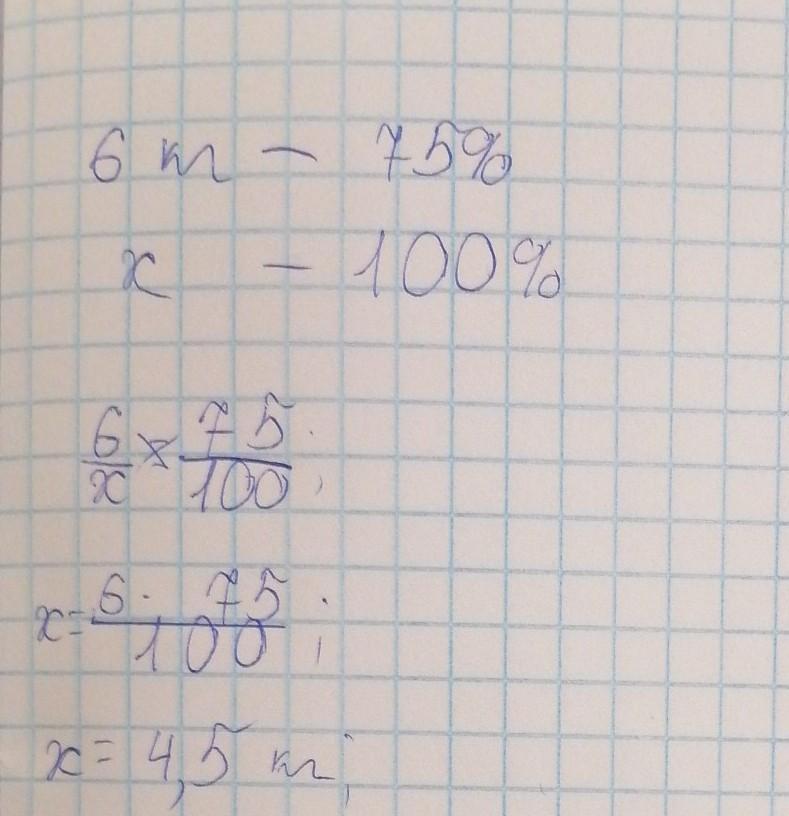 6 кг – 75%
x – 100%
6/x × 75/100;
x = 6 · 75/100;
x = 4,5 кг;